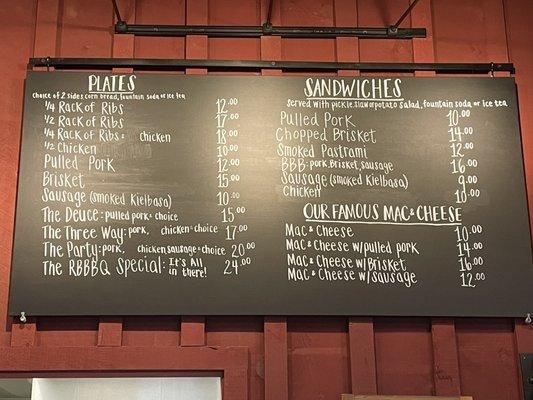 PLATES
choice of 2 sides, corn bread, fountain soda or ice tea
1/4 Rack of Ribs 12.00
1/2 Rack of Ribs 17.00
1/4 Rack of Ribs & chicken 18.00
1/2 Chicken 10.00
Pulled Pork 12.00
Brisket 15.00
Sausage (smoked Kielbasa) 10.00
The Deuce: pulled pork & choice 15.00
The Three Way: pork, chicken & choice 17.00
The Party: pork, chicken, sausage & choice 20.00
The RBBBQ Special: It's All in there! 24.00
SANDWICHES
served with pickle, slaw or potato salad, fountain soda or ice tea
Pulled Pork 10.00
Chopped Brisket 14.00
Smoked Pastrami 12.00
BBB: pork, Brisket, sausage 16.00
Sausage (smoked Kielbasa) 9.00
Chicken 10.00
OUR FAMOUS MAC & CHEESE
Mac & Cheese 10.00
Mac & Cheese w/ pulled pork 14.00
Mac & Cheese w/ Brisket 16.00
Mac & Cheese w/ Sausage 12.00